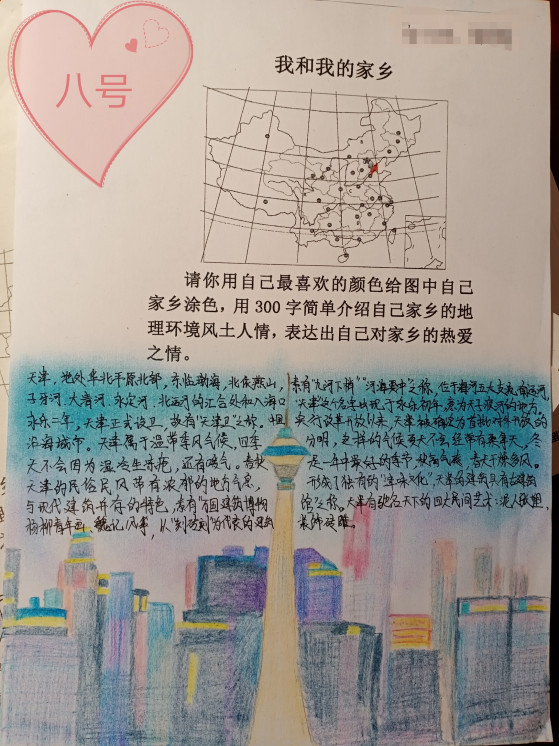 八号
我和我的家乡
请你用自己最喜欢的颜色给图中自己
家乡涂色，用 300 字简单介绍自己家乡的地
理环境风土人情，表达出自己对家乡的热爱
之情。
天津，地处华北平原北部，东临渤海，北依燕山，素有“九河下梢”“河海要冲”之称，位于海河五大支流南运河、
子牙河、大清河、永定河、北运河的汇合处和入海口“天津”这个名字出现于永乐初年，意为天子渡河的地方。
永乐二年，天津正式设卫，故有“天津卫”之称。实行改革开放以来，天津被确定为首批对外开放的
沿海城市。天津属于温带季风气候，四季分明，这样的气候夏天不会
天不会因为湿冷生冻疮，还有暖气。是一年中最好的季节，秋高气爽，
天津的民俗民风带有浓郁的地方气息，形成了独有的
与现代建筑并存的特色，素有“万国建筑博物馆”之称。天津有驰名天下的四大民间艺术：泥人张彩塑，
杨柳青年画，魏记风筝，